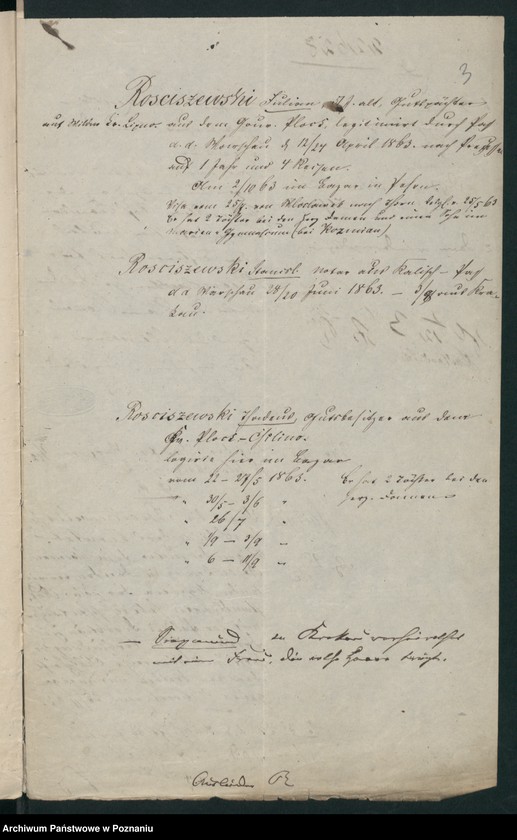 3
Rosciszewski Julian, alt, Gutspächter
aus Kr. Lipno aus dem Gouv. Plock, legitimirt durch Paß
d.d. Warschau d 12/24 April 1863. nach Preußen
auf 1 Jahr und 4 Reisen.
Am 2/10 63 im Bazar in Posen.
Visa vom 25/5 von Wloclawek nach Thorn 25/5 63
Er hat 2 Töchter bei den Herz Damen und einen Sohn im
Marien-Gymnasium (bei Kozmian)
Rosciszewski Stanisl. Notar aus Kalisch - Paß
dd Warschau 28/20 Juni 1863. — aus Kra-
kau.
Rosciszewski Thadeus, Gutsbesitzer aus dem
Plock-
logirte hier im Bazar
vom 22 - 27/5 1863. Er hat 2 Töchter bei den
" 30/5 - 3/6 " Herz-Damen
" 26/7 "
" 1/9 - 3/9 "
" 6 - 9/9 "
— in Krakau verheirathet
mit einer Frau, die rothe Haare trägt.
R
Archiwum Państwowe w Poznaniu